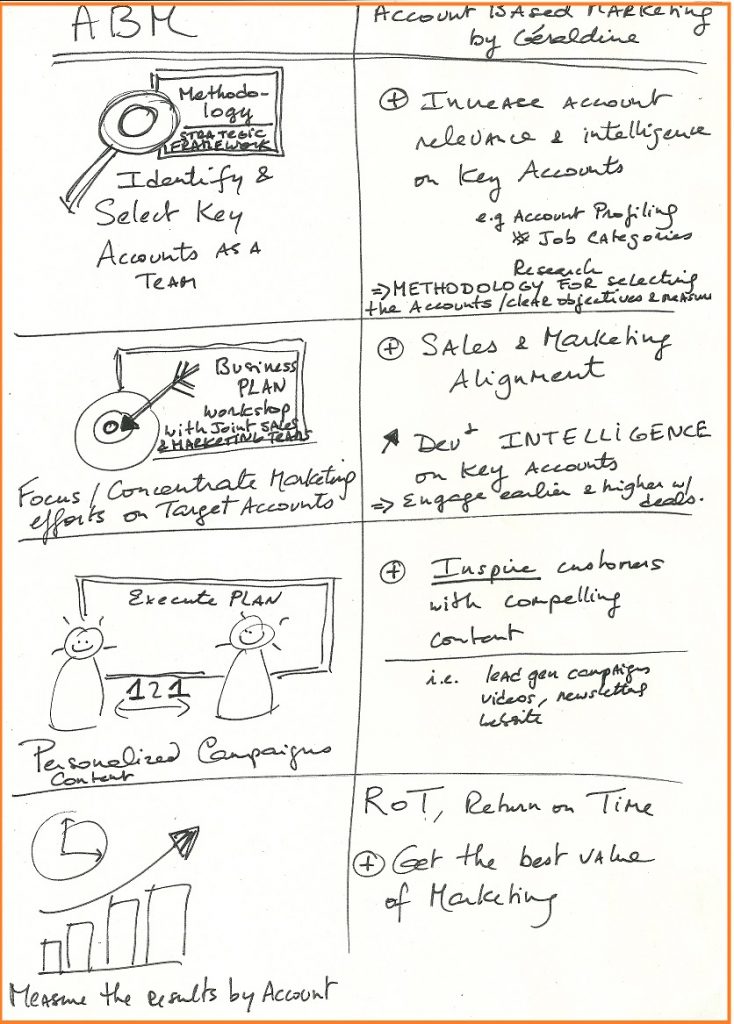 ABM
Account Based Marketing
by Géraldine
Methodo-
logy
STRATEGIC
FRAMEWORK
Identify &
Select Key
Accounts AS A
TEAM
⊕ Increase Account
relevance & intelligence
on Key Accounts
e.g Account Profiling
Job Categories
Research
⇒ METHODOLOGY FOR selecting
the Accounts / clear objectives & measure
Business
PLAN
workshop
with Joint SALES
& MARKETING TEAMS
Focus / Concentrate Marketing
efforts on Target Accounts
⊕ SALES & Marketing
Alignment
↗ Devᵗ INTELLIGENCE
on Key Accounts
⇒ Engage earlier & higher w/
deals.
Execute PLAN
121
Personalized Campaigns
Content
⊕ Inspire customers
with compelling
content
i.e. lead gen campaigns
videos, newsletters
website
Measure the results by Account
RoT, Return on Time
⊕ Get the best value
of Marketing